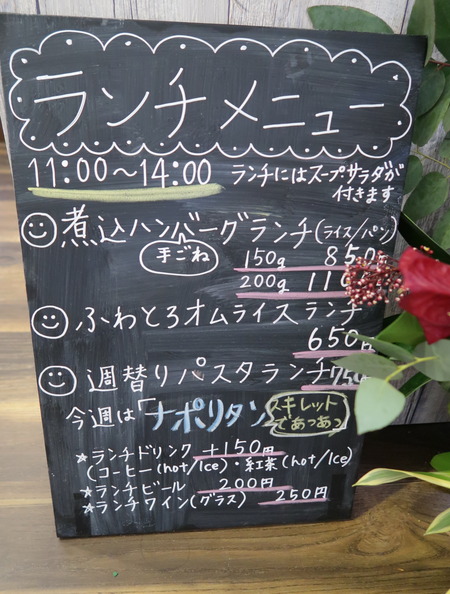 ランチメニュー
11:00〜14:00 ランチにはスープサラダが付きます
煮込ハンバーグランチ(ライス/パン)
手ごね 150g 850円
200g
ふわとろオムライスランチ
650円
週替りパスタランチ 750
今週は「ナポリタン スキレットであつあつ
★ランチドリンク +150円
(コーヒー(hot/Ice)・紅茶(hot/Ice)
★ランチビール 200円
★ランチワイン(グラス) 250円